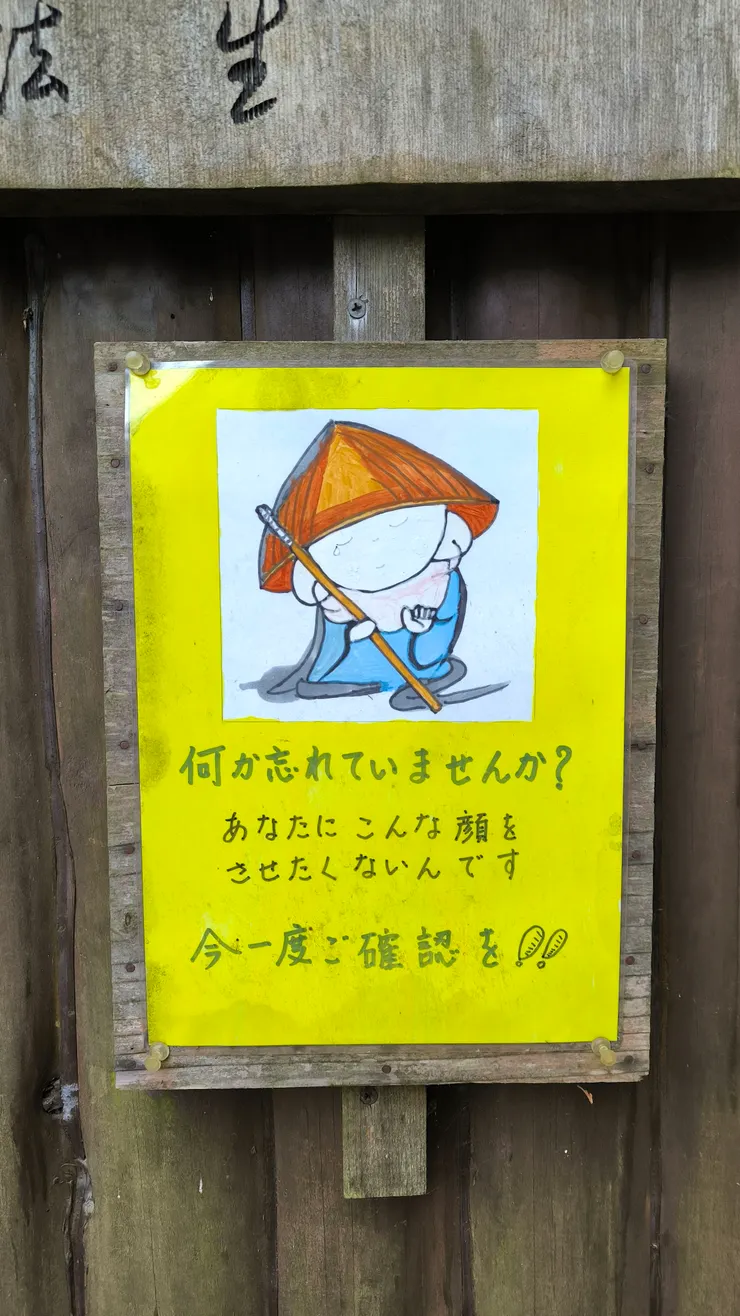 法 生
何か忘れていませんか?
あなたにこんな顔を
させたくないんです
今一度ご確認を!!